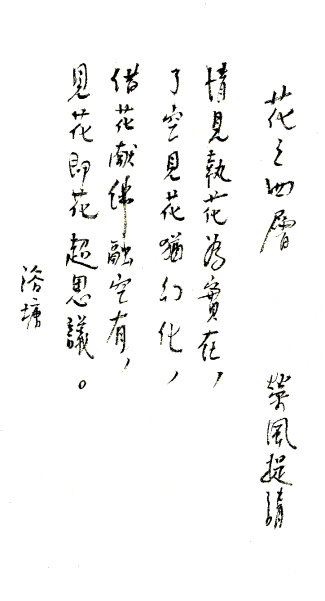 花之四層
榮風提請
情見執花為實在，
了空見花猶幻化，
借花献佛融空有，
見花即花超思議。
浴塘